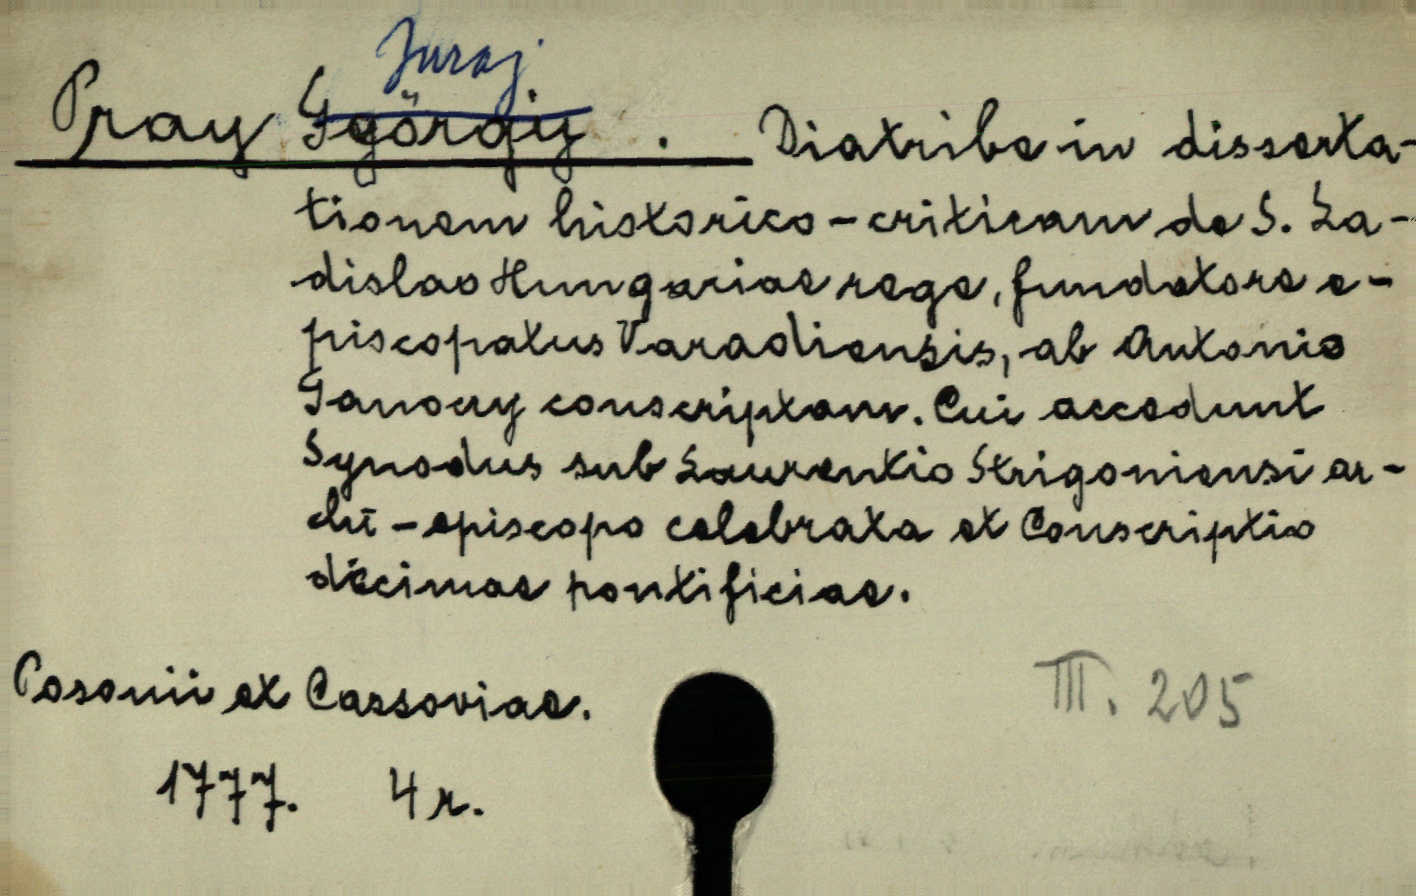 Juraj
Pray György. Diatribe in disserta-
tionem historico-criticam de S. La-
dislao Hungariae rege, fundatore e-
piscopatus Varadiensis, ab Antonio
Ganoczy conscriptam. Cui accedunt
Synodus sub Laurentio Strigoniensi ar-
chi-episcopo celebrata et Conscriptio
decimae pontificiae.
Posonii et Cassoviae.
III. 205
1777. 4 r.